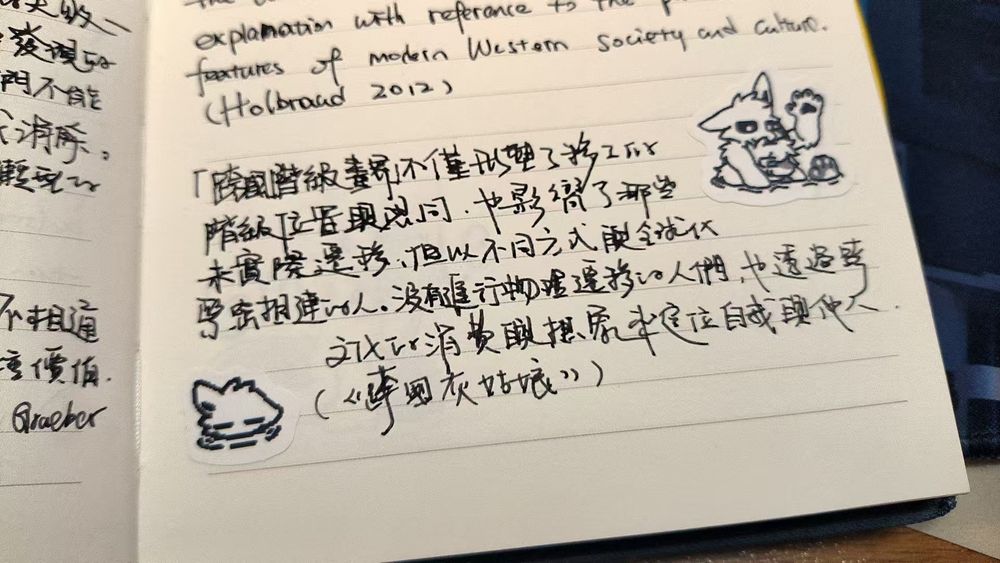 發現
們不能
消除。
不相通
價值.
Graeber
explanation with reference to the
features of modern Western society and culture.
(Holbraad 2012)
「跨國階級畫界」不僅形塑了移工的
階級位置與認同,也影響了那些
未實際遷移、但以不同方式與全球化
緊密相連的人。沒有進行物理遷移的人們,也透過跨
文化的消費與想像來定位自我與他人.
(《跨國灰姑娘》)